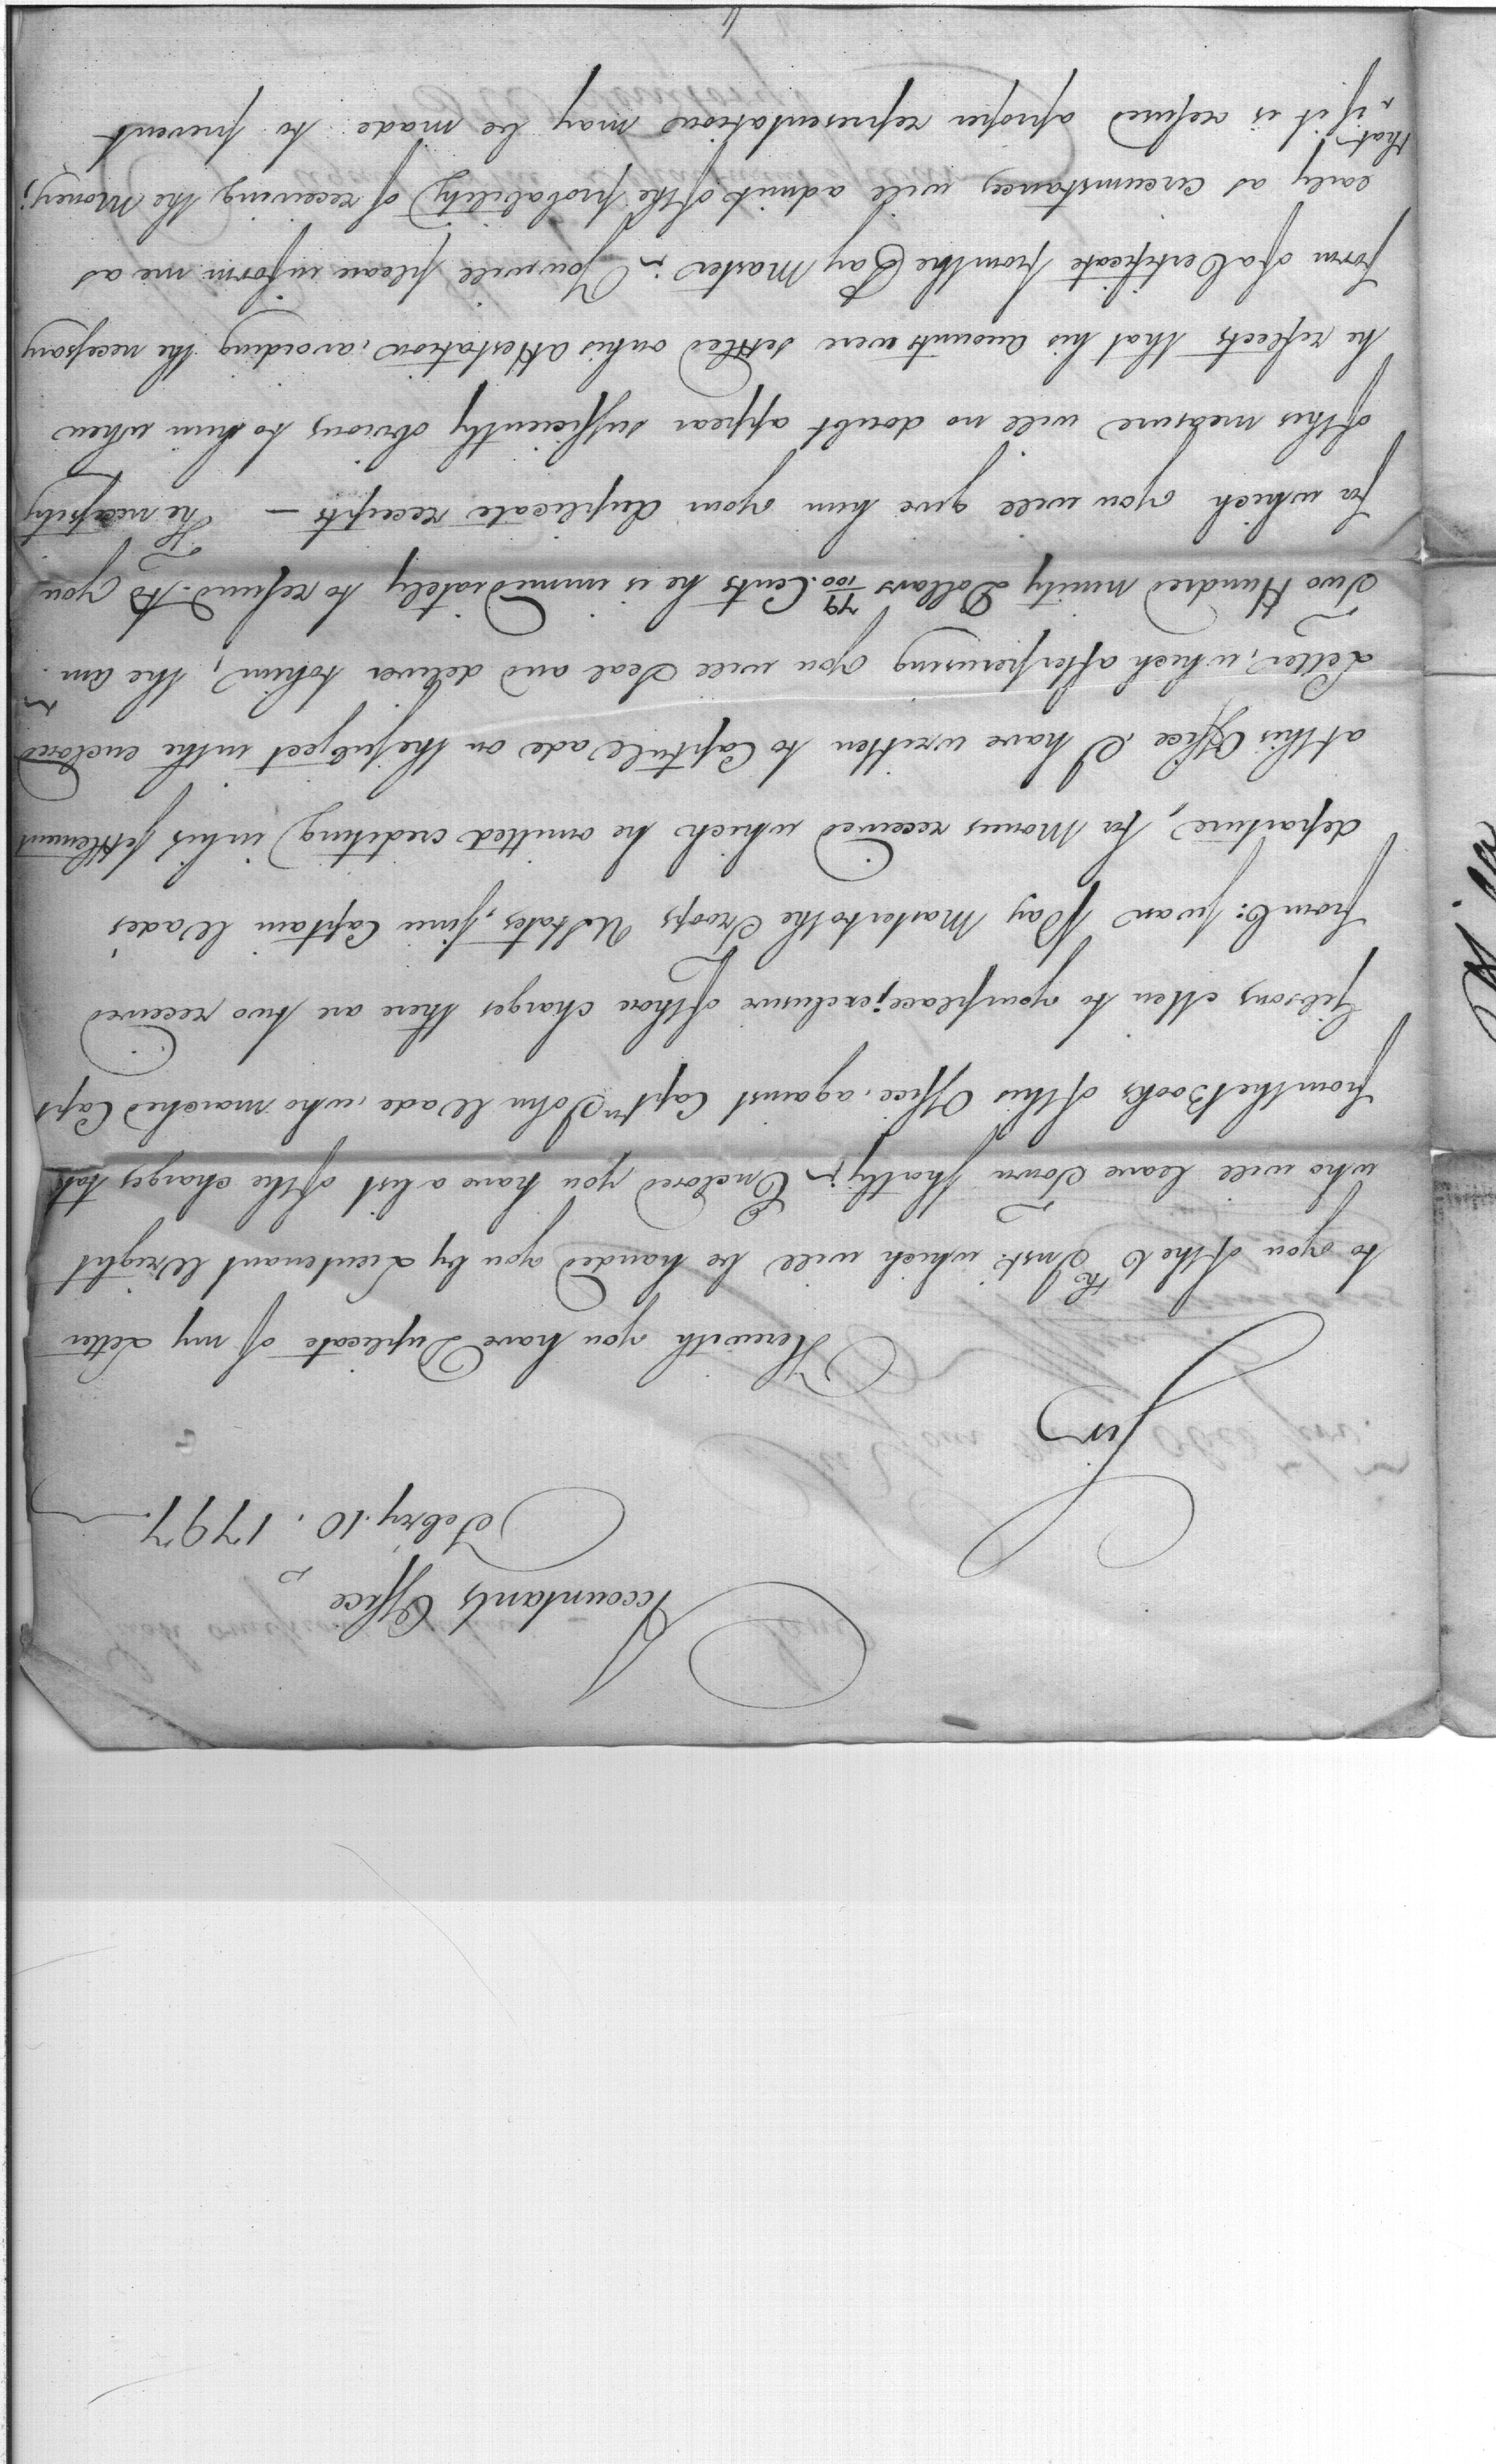 Accountants Office
Febry. 10. 1797
Sir
Herewith you have Duplicate of my Letter
to you of the 6th Inst. which will be handed you by Lieutenant Wright
who will leave Town shortly; Enclosed you have a list of the charges
from the Books of this Office, against Captn. John Wade, who marched Capt
Gibsons Men to your place; exclusive of those charges there are two received
from C: Swan Pay Master to the Troops UStates, since Captain Wade's
departure, for Monies received which he omitted crediting in his settlement
at this Office. I have written to Capt. Wade on the subject in the enclosed
Letter, which after perusing you will Seal and deliver to him, the am.
Two Hundred ninity Dollars 79/100 Cents he is immediately to refund to you
for which you will give him your duplicate receipts — The necessity
of this measure will no doubt appear sufficiently obvious to him when
he reflects that his Accounts were settled on his Attestation, avoiding the necessary
form of a Certificate from the Pay Master; You will please inform me as
early as circumstances will admit of the probability of receiving the Money;
that if it is refused a proper representation may be made to prevent